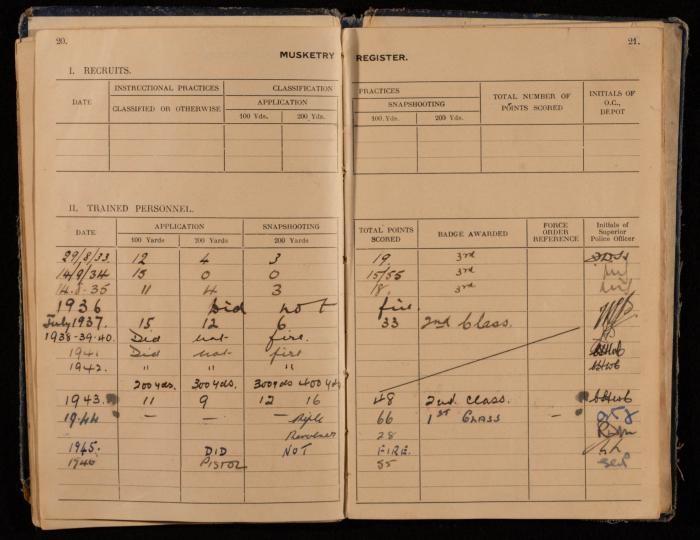 20.
21.
MUSKETRY REGISTER.
I. RECRUITS.
DATE
INSTRUCTIONAL PRACTICES
CLASSIFIED OR OTHERWISE
CLASSIFICATION PRACTICES
APPLICATION
SNAPSHOOTING
100 Yds.
200 Yds.
100 Yds.
200 Yds.
TOTAL NUMBER OF POINTS SCORED
INITIALS OF O.C., DEPOT
II. TRAINED PERSONNEL.
DATE
APPLICATION
SNAPSHOOTING
100 Yards
200 Yards
200 Yards
TOTAL POINTS SCORED
BADGE AWARDED
FORCE ORDER REFERENCE
Initials of Superior Police Officer
29/8/33 12 4 3 19 3rd
14/9/34 15 0 0 15/55 3rd
14.8.35 11 4 3 18 3rd
1936 Did not fire.
July 1937. 15 12 6 33 2nd Class.
1938-39-40. Did not fire.
1941 Did not fire
1942. " " "
200 yds. 300 yds. 300 yds 400 yds
1943 11 9 12 16 48 2nd Class.
1944 — — — Rifle 66 1ST CLASS —
Revolver 28
1945. DID NOT FIRE.
1946 PISTOL 55